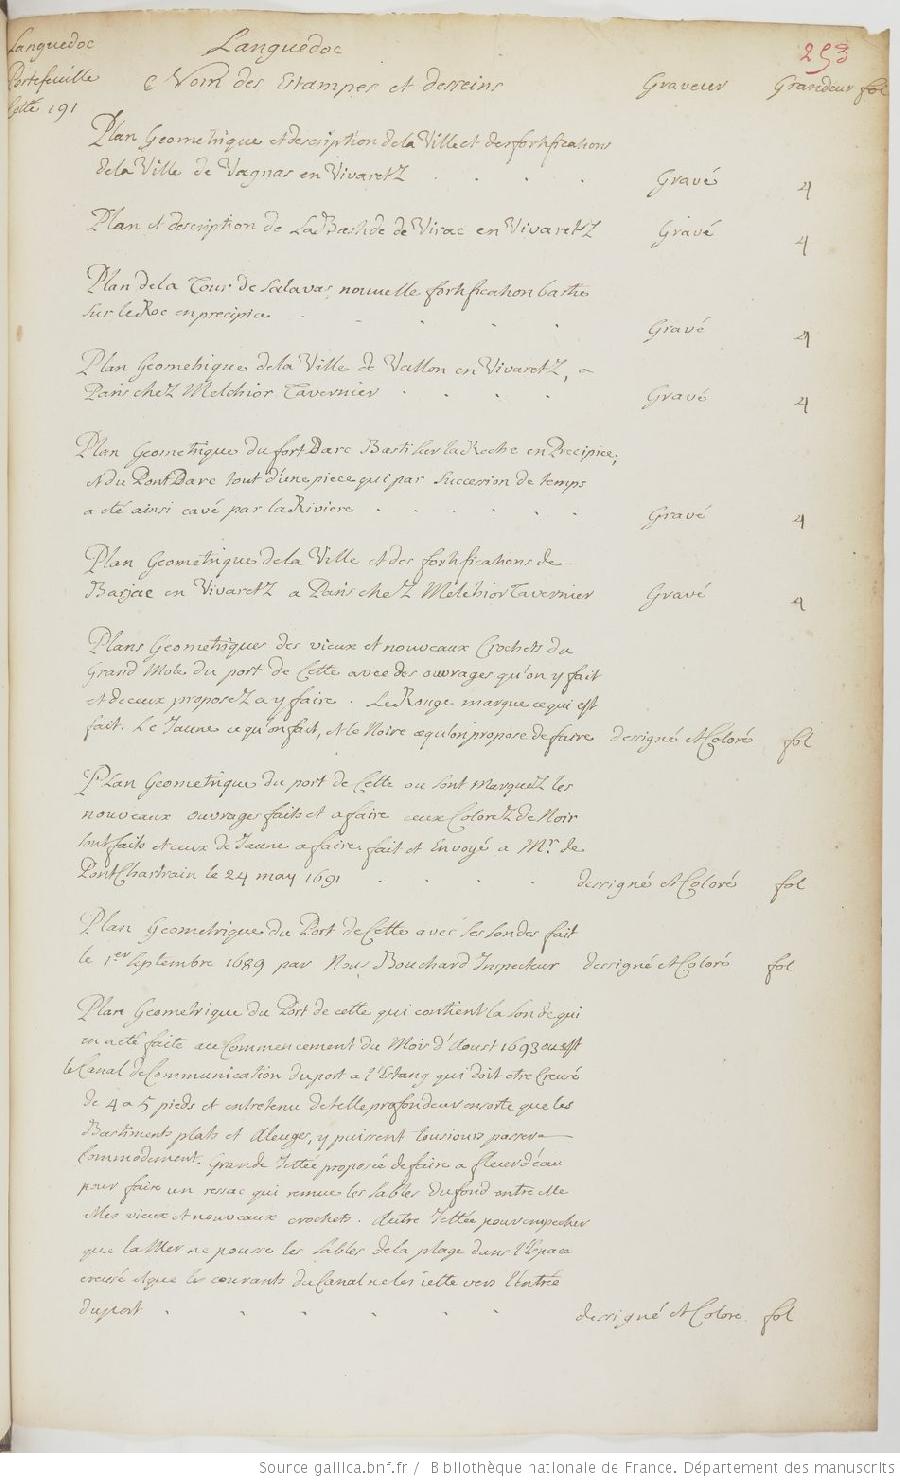 Languedoc
Portefeuille
Cotté 191
Languedoc
253
Nom des Estampes et desseins Graveur Grandeur fol
Plan Geometrique et description de la Ville et des fortifications
de la Ville de Vagnas en Vivaretz Gravé 4
Plan et description de La Bastide de Virac en Vivaretz Gravé 4
Plan de la Tour de Salavas, nouvelle fortification bastie
sur le Roc en precipice Gravé 4
Plan Geometrique de la Ville de Vallon en Vivaretz, a
Paris chez Melchior Tavernier Gravé 4
Plan Geometrique du fort Darc Basti sur la Roche en Precipice,
et du Pont Darc tout d'une piece qui par Succession de temps
a eté ainsi cavé par la Riviere Gravé 4
Plan Geometrique de la Ville et des fortifications de
Barjac en Vivaretz a Paris chez Melchior Tavernier Gravé 4
Plans Geometriques des vieux et nouveaux Crochets du
Grand Mole du port de Cette avec des ouvrages qu'on y fait
et de ceux proposez a y faire. Le Rouge marque ce qui est
fait. Le Jaune ce qu'on fait, et le Noire ce qu'on propose de faire dessigné et Coloré fol
Plan Geometrique du port de Cette ou sont marquez les
nouveaux ouvrages faits et a faire ceux Colorez de Noir
sont faits et ceux de Jaune a faire, fait et Envoyé a Mr. de
PontChartrain le 24 may 1691 dessigné et Coloré fol
Plan Geometrique du Port de Cette avec ses sondes fait
le 1er Septembre 1689 par Nous Bouchard Inspecteur dessigné et Coloré fol
Plan Geometrique du Port de cette qui contient la sonde qui
en a eté faite au Commencement du Mois d'Aoust 1693 ou est
le Canal de Communication du port a l'Estang qui doit etre Creusé
de 4 a 5 pieds et entretenu de telle profondeur en sorte que les
Bastiments plats et Aleuges, y puissent tousiours passer
Commodement. Grande Jettée proposée de faire a fleur d'eau
pour faire un ressac qui remue les sables du fond entre elle
et les vieux et nouveaux crochets. Autre Jettée pour empecher
que la Mer ne pousse les sables de la plage dans l'Espace
creusé et que les courants du Canal ne les jette vers l'entrée
du port dessigné et Coloré fol
Source gallica.bnf.fr / Bibliothèque nationale de France. Département des manuscrits